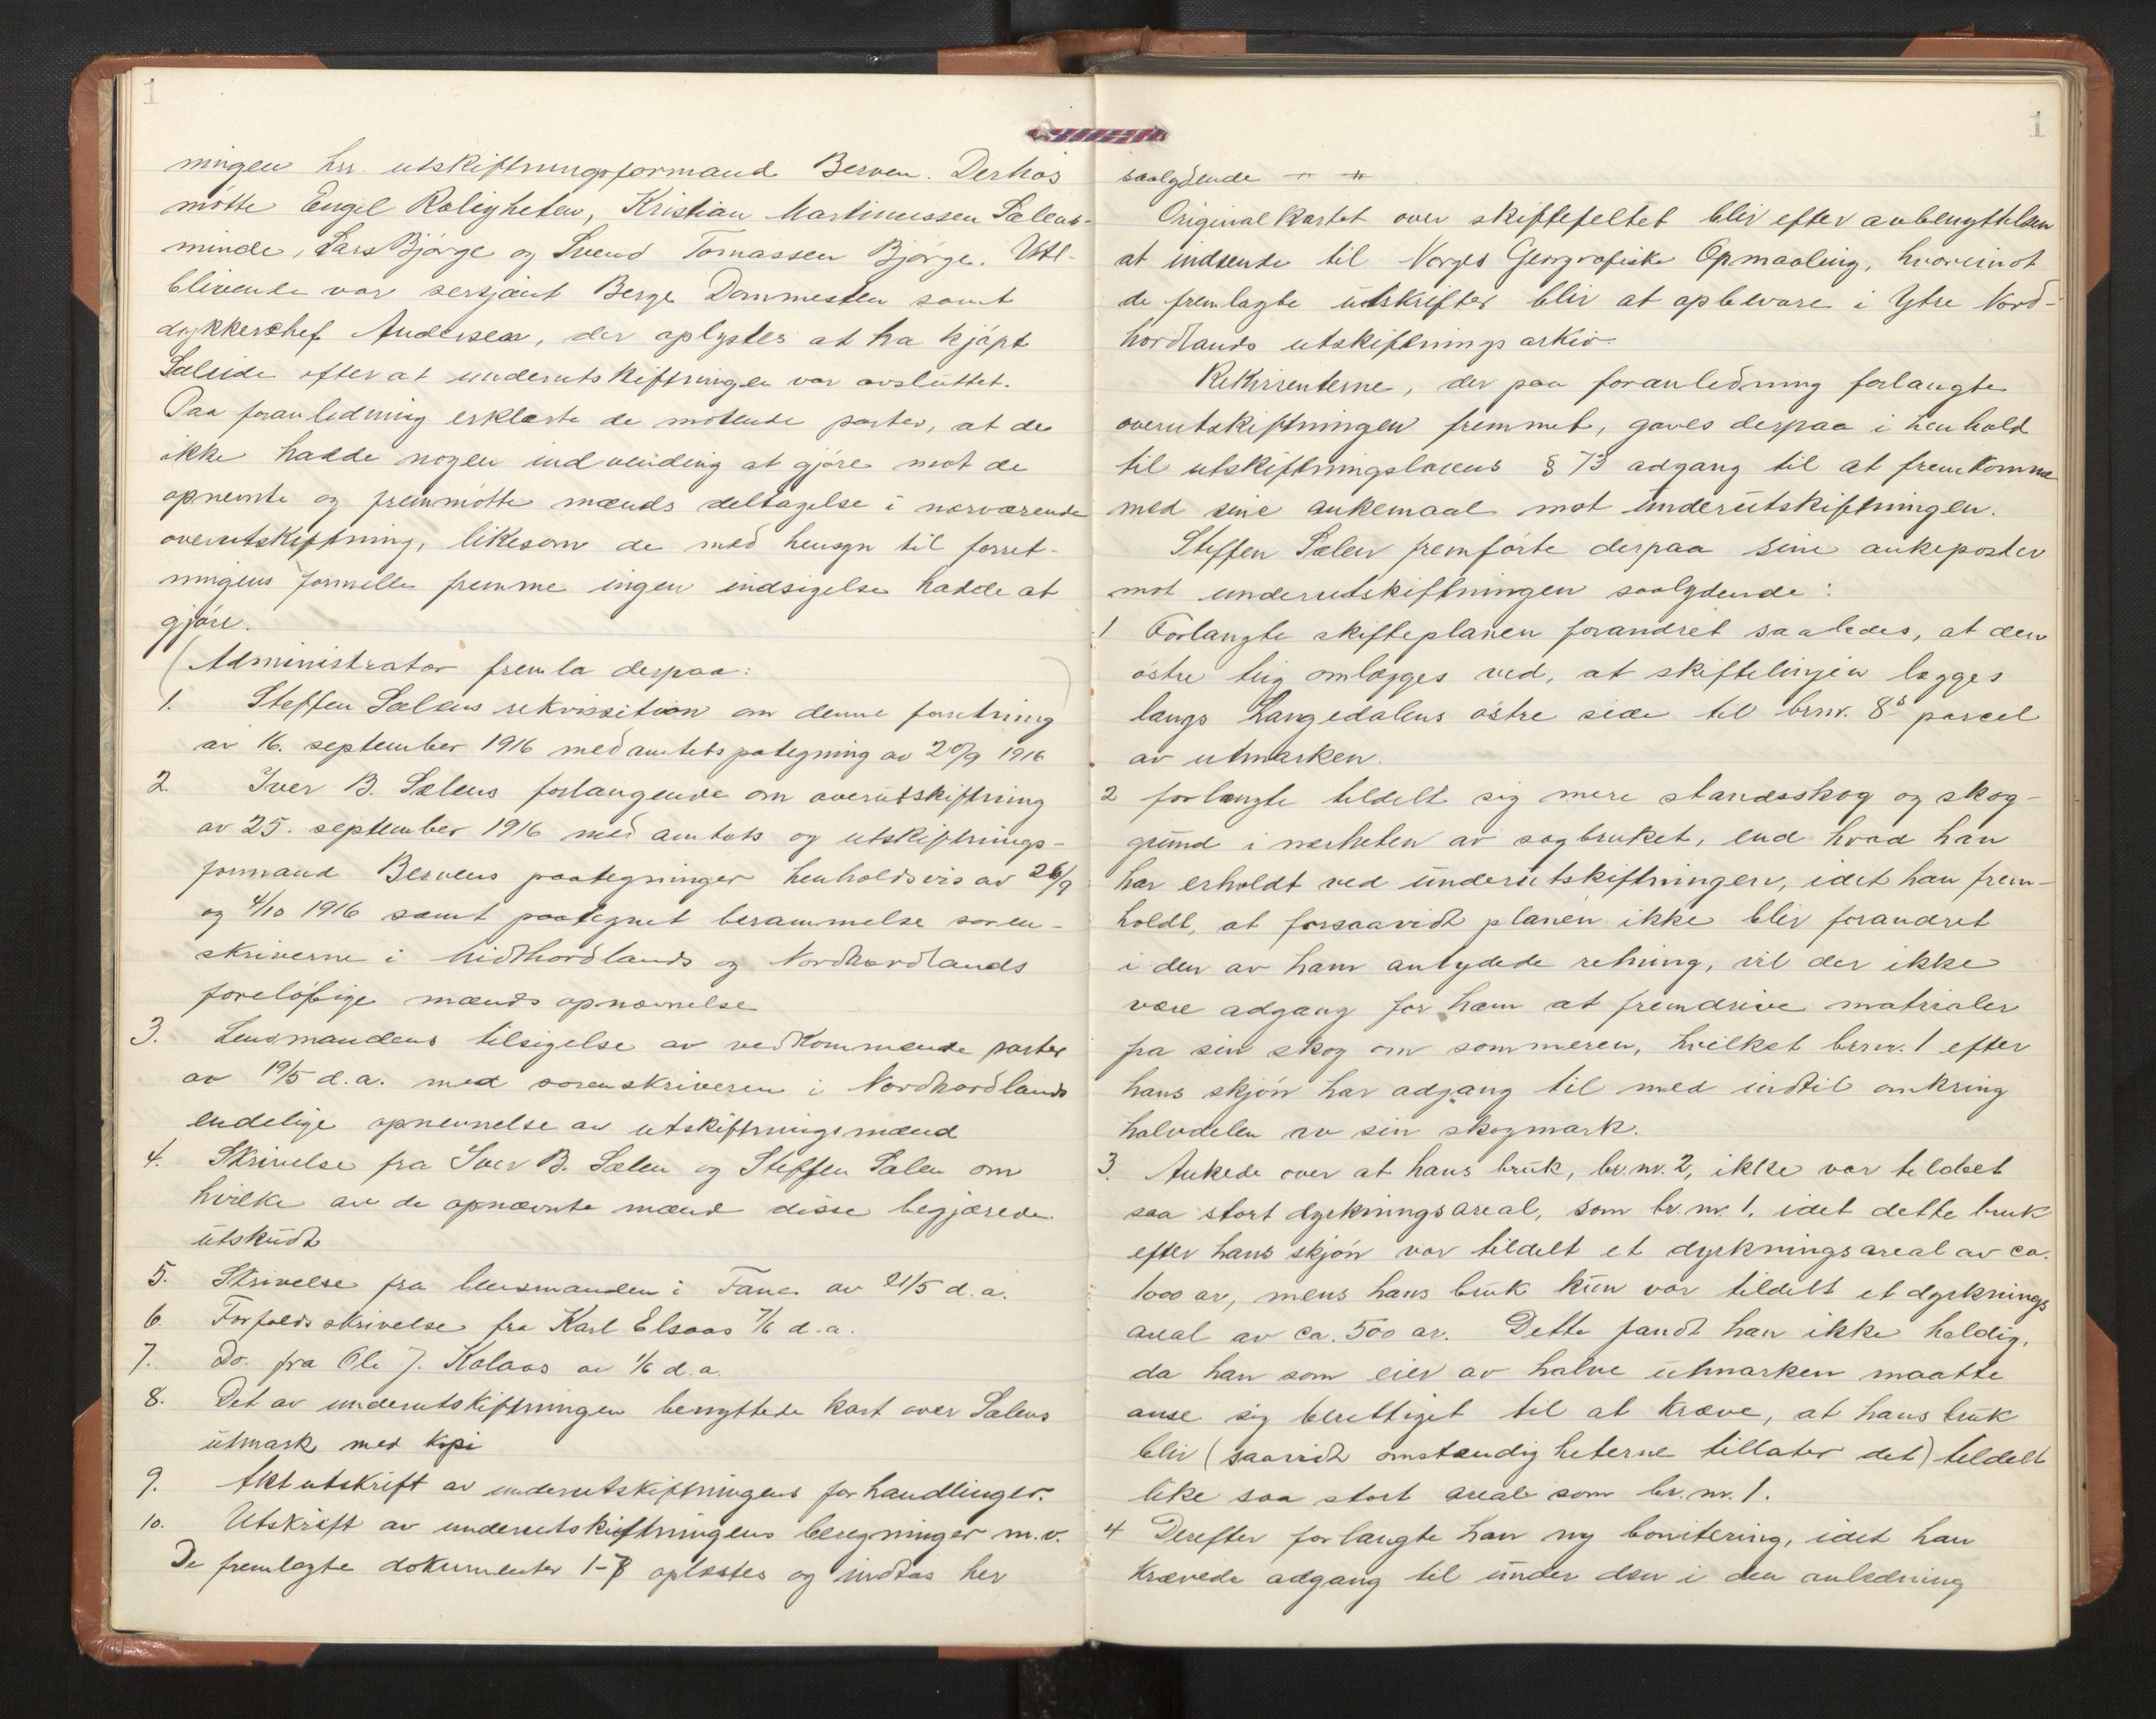 1
ningen hrr. utskiftningsformand Berven. Derhos
møtte Engel Roligheten, Kristian Martinussen Sælens-
minde, Lars Bjørge og Svend Tomassen Bjørge. Ute-
blivende var sersjant Berge Dommesten samt
dykkerchef Andersen, der oplystes at ha kjøpt
Sæleide efter at underutskiftningen var avsluttet.
Paa foranledning erklærte de møtende parter, at de
ikke hadde nogen indvending at gjøre mot de
opnevnte og fremmøtte mænds deltagelse i nærværende
overutskiftning, likesom de med hensyn til forret-
ningens formelle fremme ingen indsigelse hadde at
gjøre.
Administrator fremla derpaa:
1. Steffen Sælens rekvisition om denne forretning
av 16. september 1916 med amtets paategning av 20/9 1916
2. Iver B. Sælens forlangende om overutskiftning
av 25. september 1916 med amtets og utskiftnings-
formand Bervens paategninger henholdsvis av 26/9
og 4/10 1916 samt paategnet berammelse soren-
skriverne i Midthordlands og Nordhordlands
foreløbige mænds opnævnelse
3. Lensmandens tilsigelse av vedkommende parter
av 19/5 d.a. med sorenskriveren i Nordhordlands
endelige opnevnelse av utskiftningsmænd
4. Skrivelse fra Iver B. Sælen og Steffen Sælen om
hvilke av de opnævnte mænd disse begjærede
utskudt
5. Skrivelse fra lensmanden i Fane av 21/5 d.a.
6. Forfaldsskrivelse fra Karl Elsaas 7/6 d.a.
7. Do. fra Ole J. Kalaas av 1/6 d.a.
8. Det av underutskiftningen benyttede kart over Sælens
utmark med kopi
9. Aktutskrift av underutskiftningens forhandlinger.
10. Utskrift av underutskiftningens beregninger m.v.
De fremlagte dokumenter 1-7 oplæstes og indtas her
1
saalydende - " - " -
Originalkartet over skiftefeltet blir efter avbenyttelsen
at indsende til Norges Geografiske Opmaaling, hvorimot
de fremlagte utskrifter blir at opbevare i Ytre Nord-
hordlands utskiftningsarkiv.
Rekvirenterne, der paa foranledning forlangte
overutskiftningen fremmet, gaves derpaa i henhold
til utskiftningslovens § 73 adgang til at fremkomme
med sine ankemaal mot underutskiftningen.
Steffen Sælen fremførte derpaa sine ankeposter
mot underutskiftningen saalydende:
1 Forlangte skifteplanen forandret saaledes, at den
østre teig omlægges ved, at skiftelinjen lægges
langs Langedalens østre side til brnr. 8s parcel
av utmarken.
2 forlangte tildelt sig mere standsskog og skog-
grund i nærheten av sagbruket, end hvad han
har erholdt ved underutskiftningen, idet han frem-
holdt, at forsaavidt planen ikke blir forandret
i den av ham antydede retning, vil der ikke
være adgang for ham at fremdrive materialer
fra sin skog om sommeren, hvilket brnr. 1 efter
hans skjøn har adgang til med indtil omkring
halvdelen av sin skogmark.
3. Ankede over at hans bruk, br.nr. 2, ikke var tildelt
saa stort dyrkningsareal, som br.nr. 1, idet dette bruk
efter hans skjøn var tildelt et dyrkningsareal av ca.
1000 ar, mens hans bruk kun var tildelt et dyrknings
areal av ca. 500 ar. Dette fandt han ikke holdig,
da han som eier av halve utmarken maatte
anse sig berettiget til at kræve, at hans bruk
blir (saavidt omstændigheterne tillater det) tildelt
like saa stort areal som br.nr. 1.
4 Derefter forlangte han ny bonitering, idet han
krævede adgang til under den i den anledning